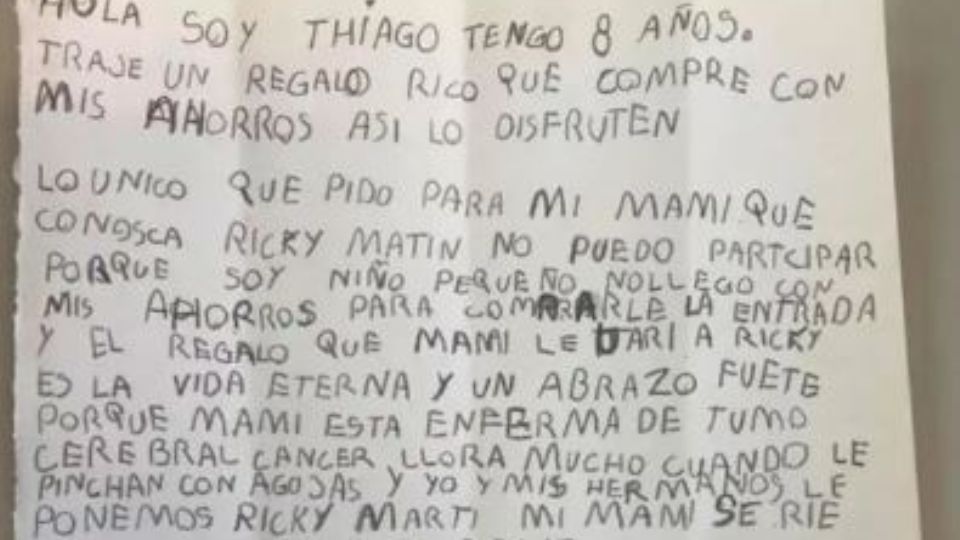 HOLA SOY THIAGO TENGO 8 AÑOS.
TRAJE UN REGALO RICO QUE COMPRE CON
MIS AHORROS ASI LO DISFRUTEN
LO UNICO QUE PIDO PARA MI MAMI QUE
CONOSCA RICKY MATIN NO PUEDO PARTCIPAR
PORQUE SOY NIÑO PEQUEÑO NOLLEGO CON
MIS AHORROS PARA COMPRARLE LA ENTRADA
Y EL REGALO QUE MAMI LE DARI A RICKY
ES LA VIDA ETERNA Y UN ABRAZO FUETE
PORQUE MAMI ESTA ENFERMA DE TUMO
CEREBRAL CANCER, LLORA MUCHO CUANDO LE
PINCHAN CON AGOJAS Y YO Y MIS HERMANOS LE
PONEMOS RICKY MARTI MI MAMI SE RIE